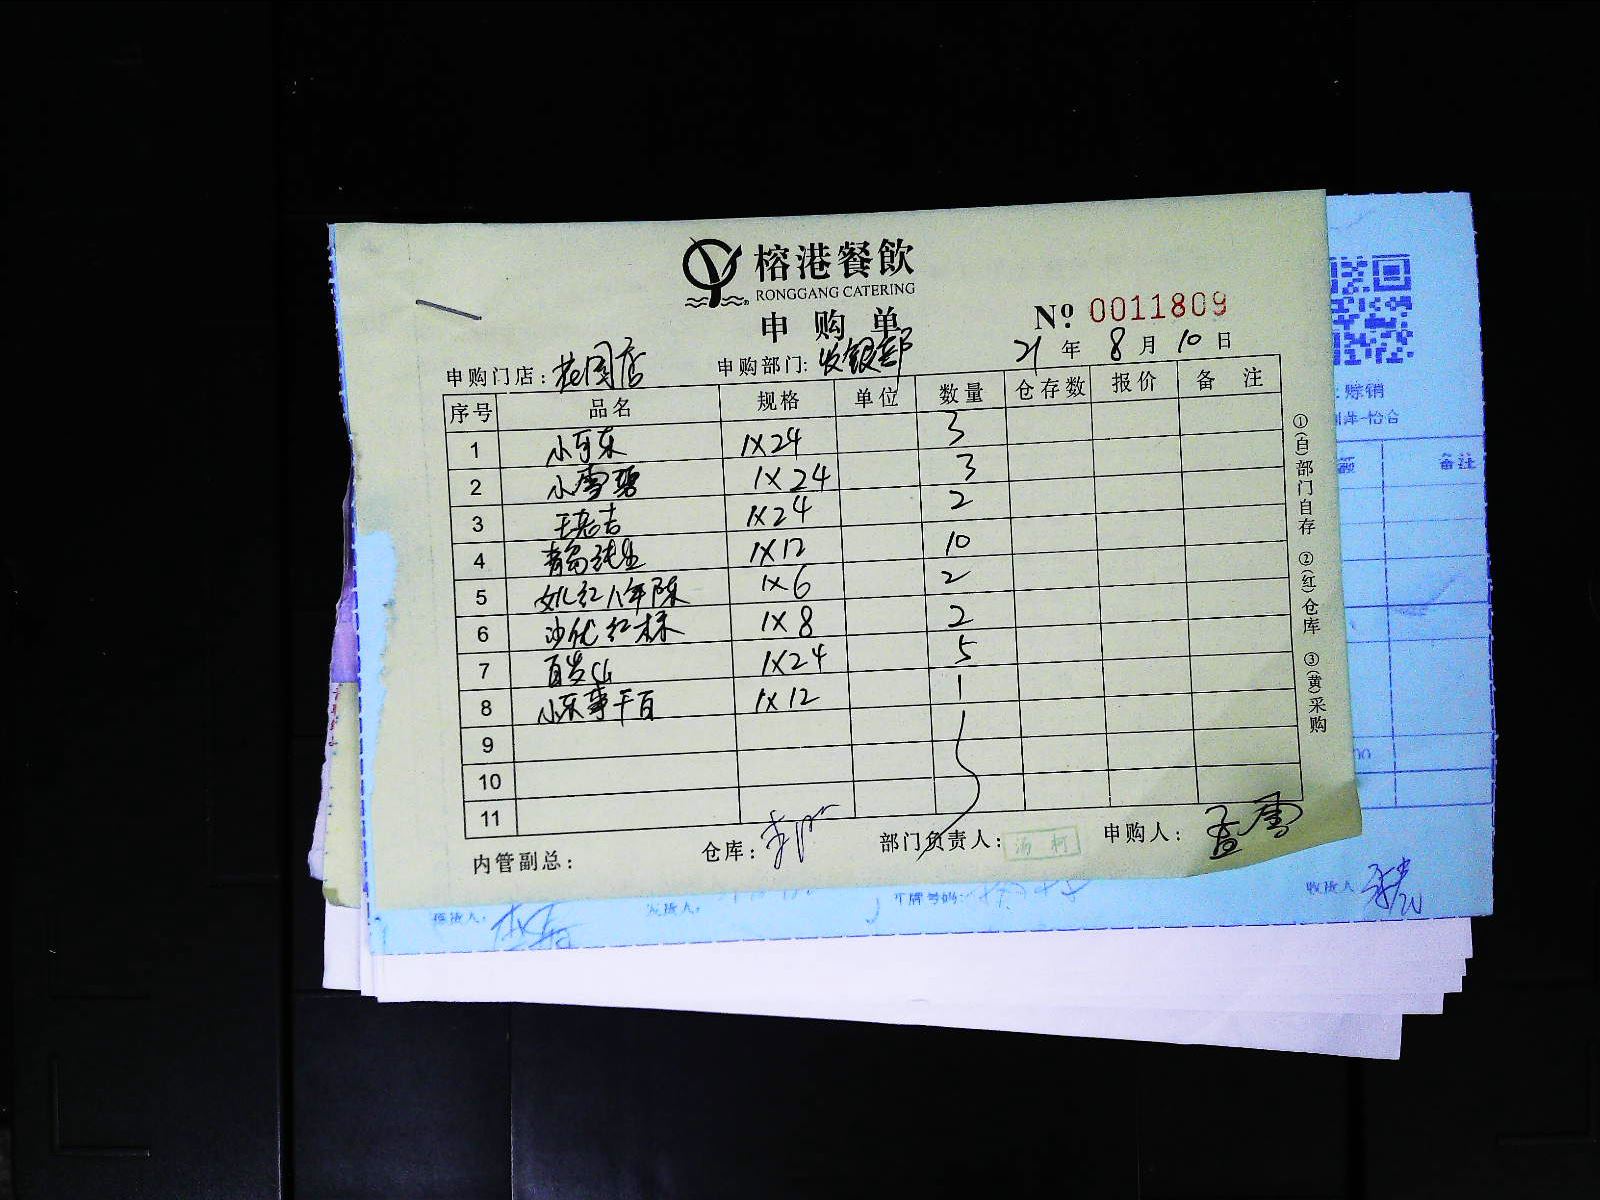 榕港餐飲
RONGGANG CATERING
申购单
№ 0011809
申购门店:花园店 申购部门:收银部 21年8月10日
序号 品名 规格 单位 数量 仓存数 报价 备注
1 小可乐 1X24 3
2 小雪碧 1X24 3
3 王老吉 1X24 2
4 青岛纯生 1X12 10
5 女儿红八年陈 1X6 2
6 沙优 红标 1X8 2
7 百岁山 1X24 5
8 1X12 1
9
10
11
内管副总: 仓库: 部门负责人: 汤柯 申购人: 孟雪
①(白)部门自存 ②(红)仓库 ③(黄)采购
赊销
怡合
备注
车牌号码:
收货人